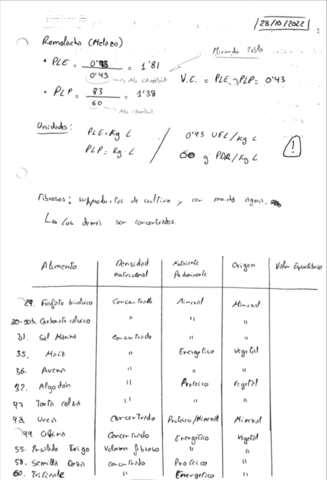 28/10/2022
Remolacha (Melaza)
Mirando Tabla
• PLE = 0'78 / 0'43 = 1'81
No cambia
V.C. = PLE = PLP = 0'43
• PLP = 83 / 60 = 1'38
No cambia
Unidades:
PLE = Kg L / 0'43 UFL/Kg L
PLP = Kg L / 60 g PDR/Kg L
Fibrosos: subproductos de cultivo y con mucha agua.
Los demás son concentrados.
Alimento | Densidad nutricional | Nutriente Predominante | Origen | Valor Equilibrio
29. Fosfato bicálcico | Concentrado | Mineral | Mineral
Carbonato cálcico | " | " | "
31. Sal Marina | Concentrado | " | "
35. Maíz | " | Energético | Vegetal
36. Avena | " | " | "
37. Algodón | " | Proteico | Vegetal
Torta colza | " | " | "
Urea | Concentrado | Proteico/Mineral | Mineral
Concentrado | Energético | Vegetal
55. Trigo | Voluminoso fibroso | " | "
58. Semilla | Concentrado | Proteico | "
60. Triticale | " | Energético | "